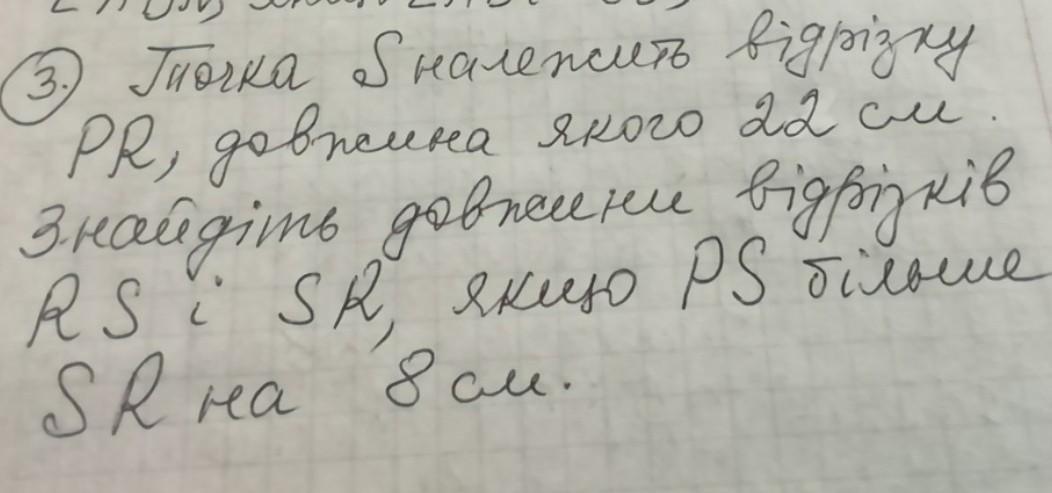 3. Точка S належить відрізку
PR, довжина якого 22 см.
Знайдіть довжини відрізків
RS і SR, якщо PS більше
SR на 8 см.